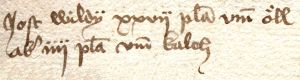 Jost wildy xxvij plā vm̄ öll
ab iiij plā vm̄ kalch